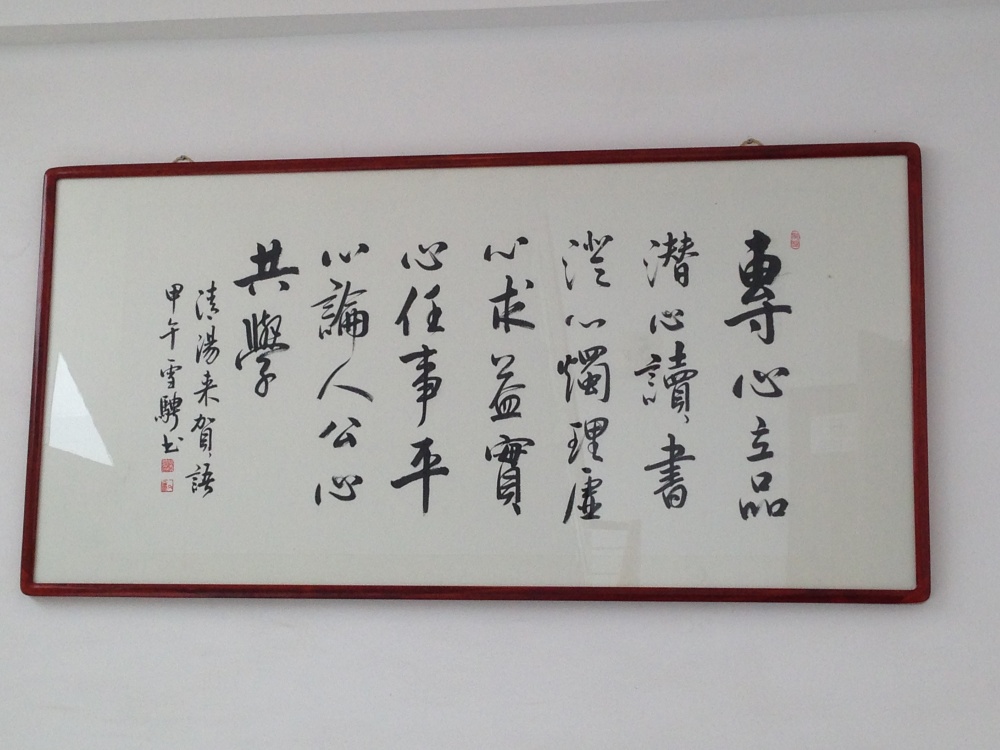 專心立品
潜心讀書
澄心燭理虛
心求益實
心任事平
心論人公心
共學
清湯来賀語
甲午雪騁书